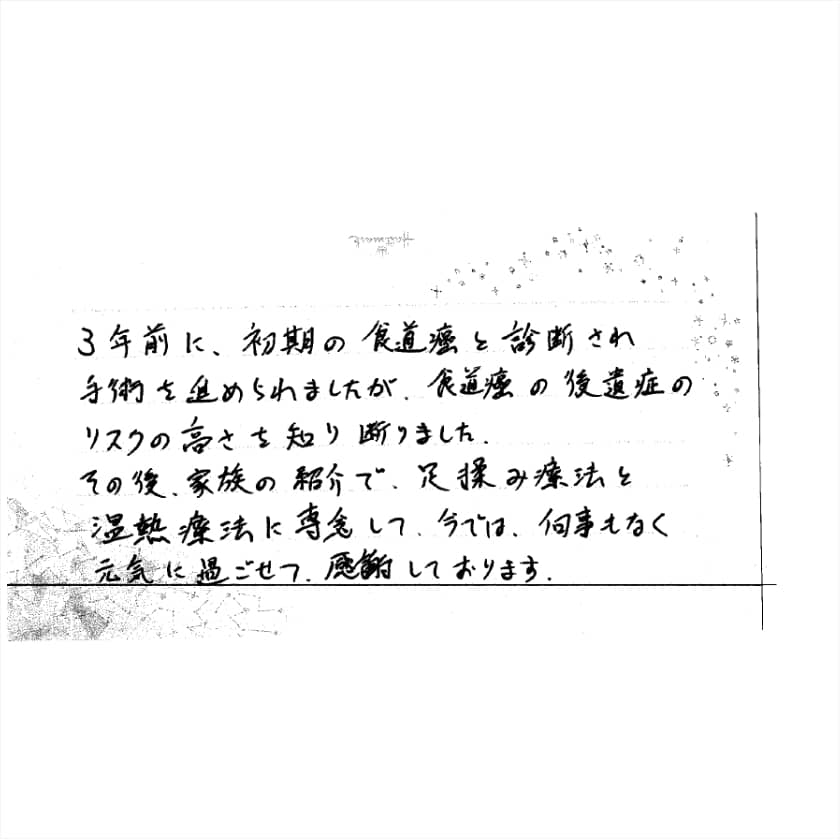 Hallmark
3年前に、初期の食道癌と診断され
手術を進められましたが、食道癌の後遺症の
リスクの高さを知り断りました。
その後、家族の紹介で、足揉み療法と
温熱療法に専念して、今では、何事もなく
元気に過ごせて、感謝しております。